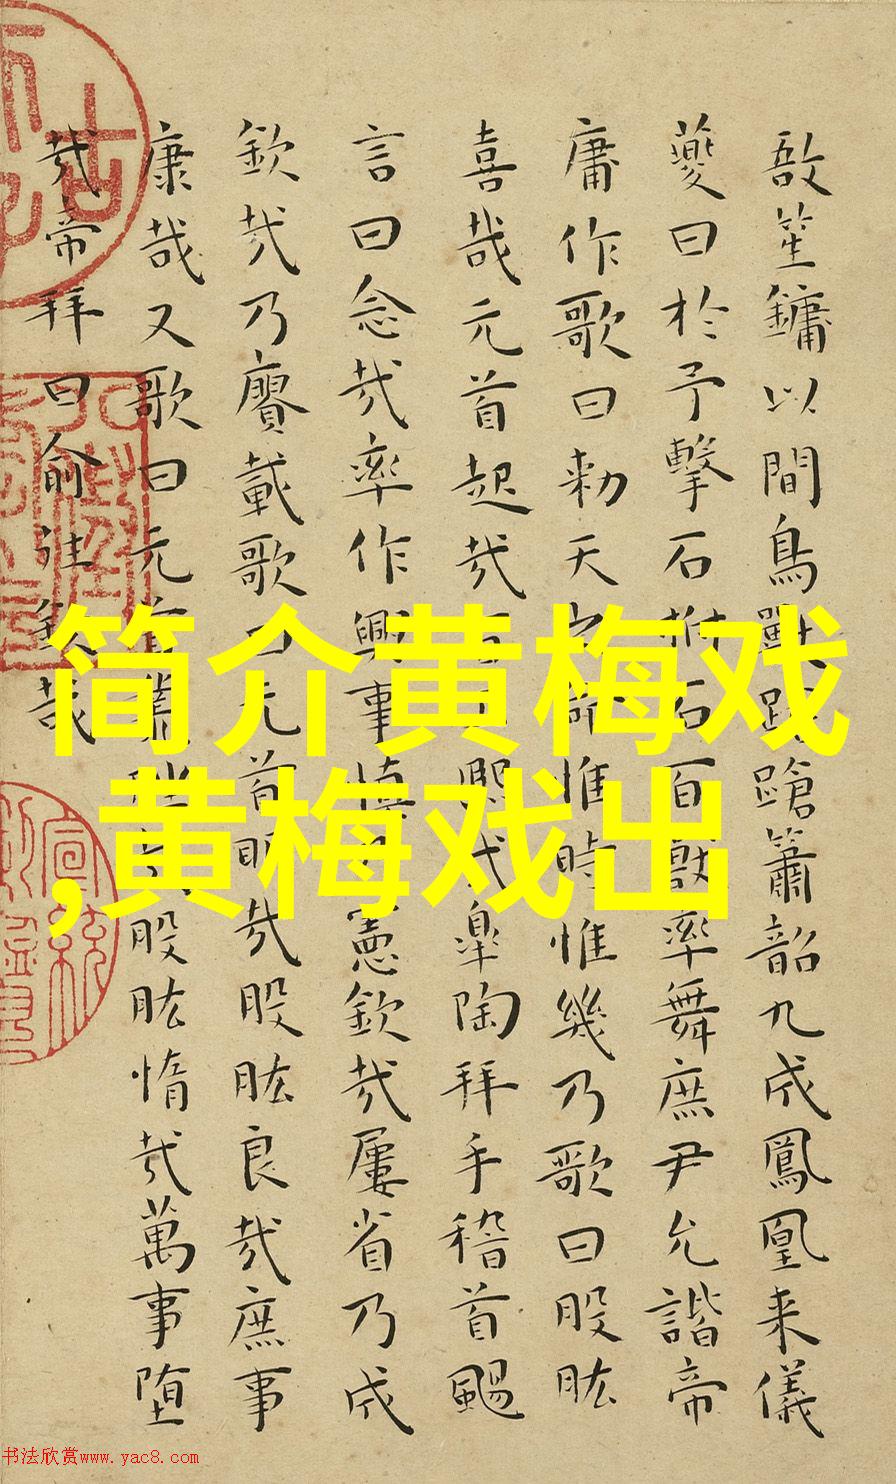 敔笙鏞以間鳥獸蹌蹌簫韶九成鳳凰来儀
夔曰於予擊石拊石百獸率舞庶尹允諧帝
庸作歌曰勅天之命惟時惟幾乃歌曰股肱
喜哉元首起哉百工熙哉皋陶拜手稽首颺
言曰念哉率作興事慎乃憲欽哉屢省乃成
欽哉乃賡載歌曰元首明哉股肱良哉庶事
康哉又歌曰元首叢脞哉股肱惰哉萬事堕
哉帝拜曰俞往欽哉
简介黄梅戏
,黄梅戏出
书法欣赏www.yac8.com